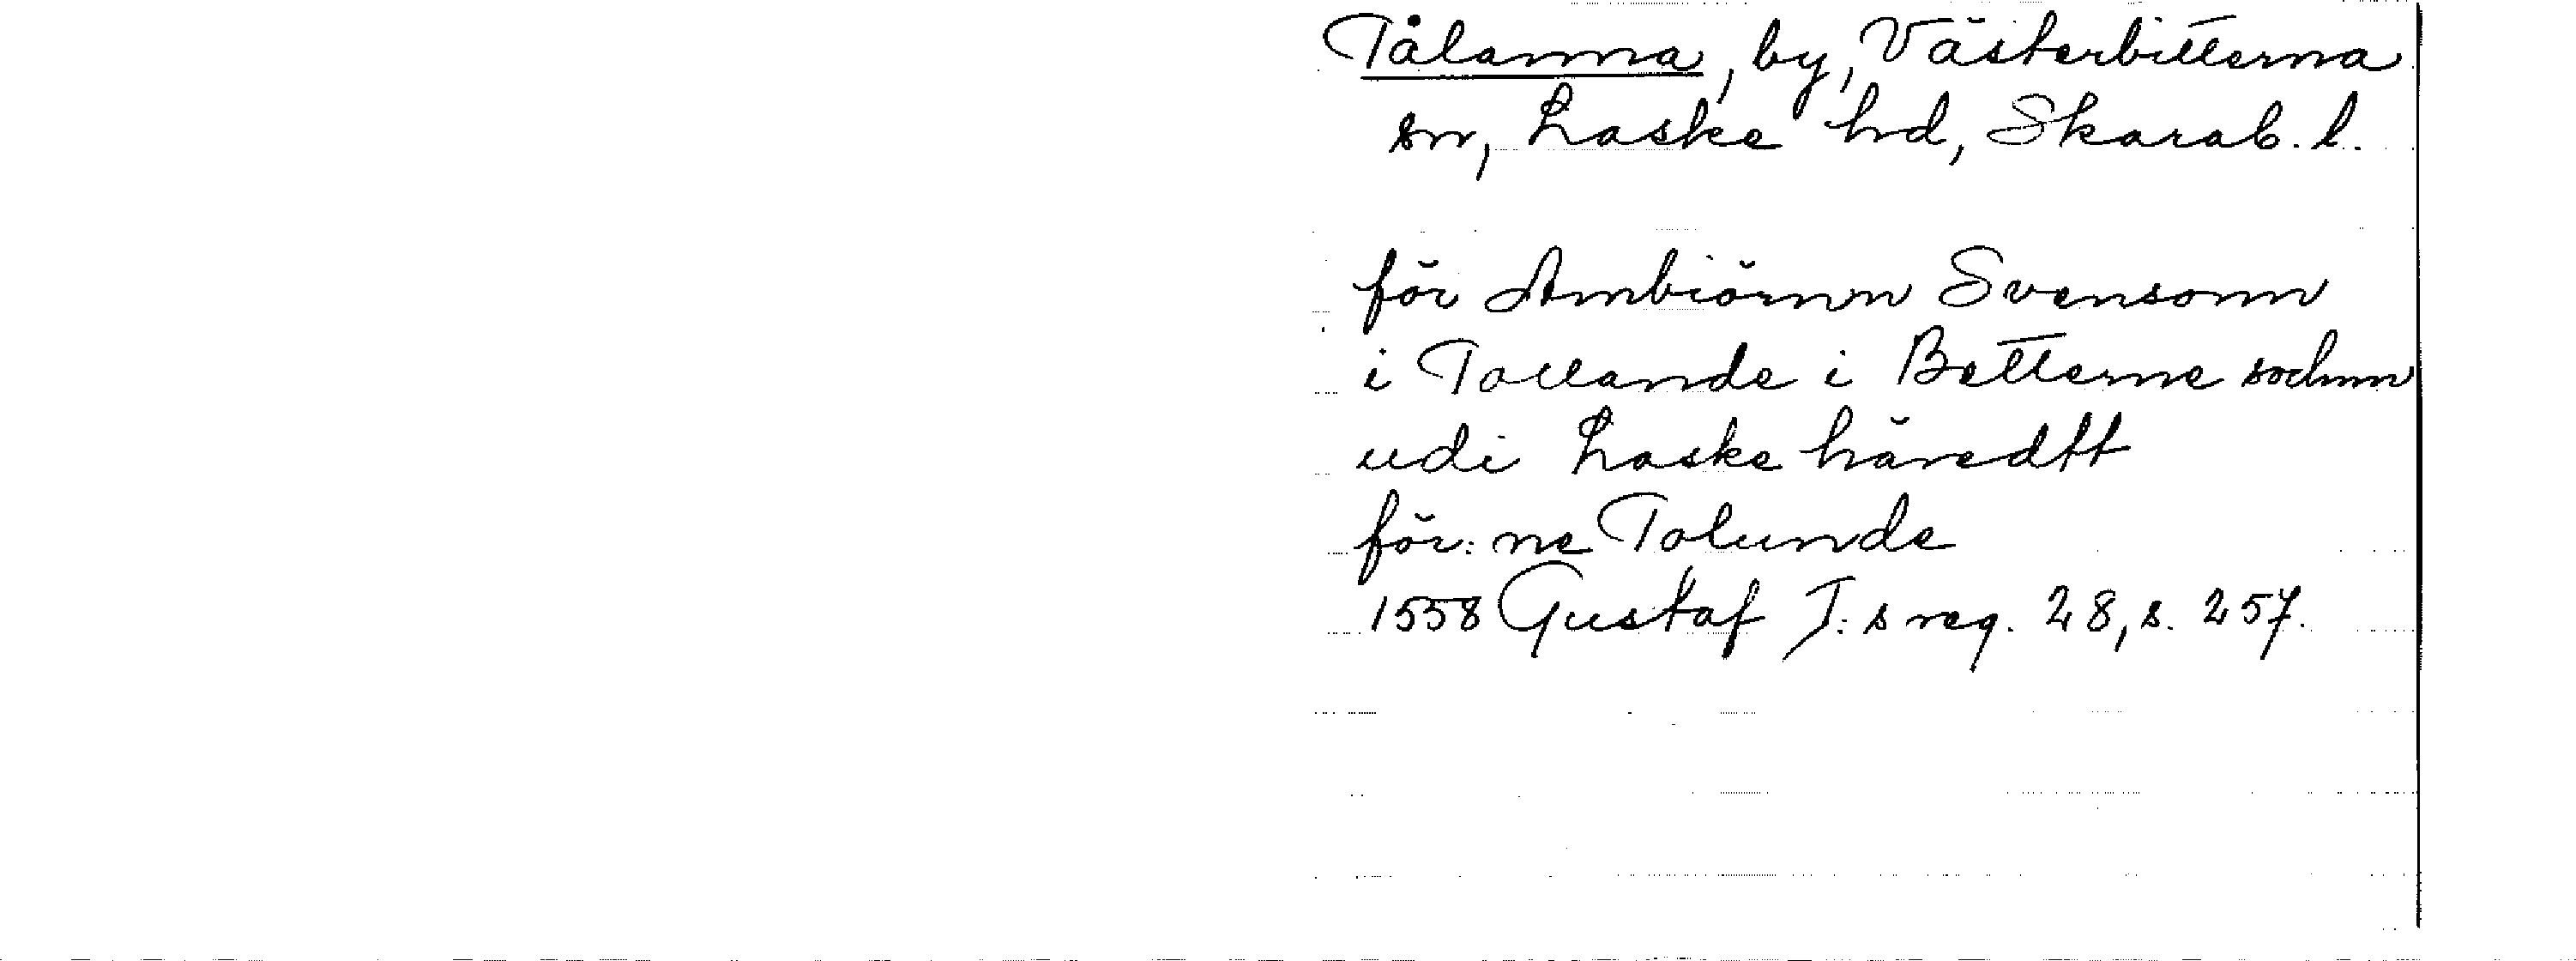 Tålanna, by, Västerbitterna
sn, Laske hd, Skarab. l.
för Ambiörnn Svensonn
i Tollande i Betterne sochnn
udi Laske häredtt
för: ne Tolunde
1558 Gustaf I:s reg. 28, s. 257.